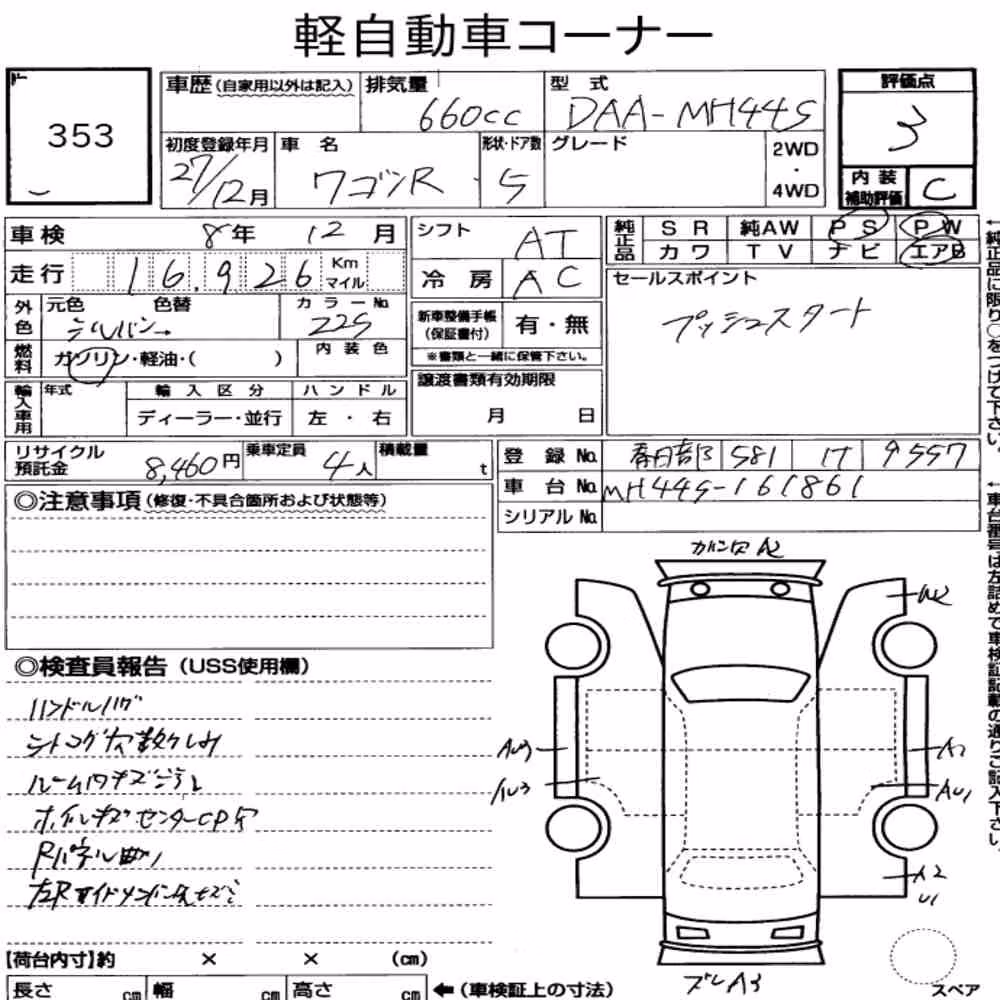 軽自動車コーナー
353
車歴(自家用以外は記入) 排気量 660cc 型式 DAA-MH44S
初度登録年月 27/12月 車名 ワゴンR 形状・ドア数 ・5 グレード 2WD・4WD
評価点 3
内装補助評価 C
車検 8年 12月
走行 16.926 Km マイル
外色 元色 色替 カラーNo. Z2S
シルバー
燃料 ガソリン・軽油・( ) 内装色
輸入車用 年式 輸入区分 ハンドル
ディーラー・並行 左・右
シフト AT
冷房 AC
新車整備手帳(保証書付) 有・無
※書類と一緒に保管下さい。
譲渡書類有効期限
月 日
純正品 SR 純AW PS PW
カワ TV ナビ エアB
セールスポイント
プッシュスタート
←純正品に限り○をつけて下さい。
リサイクル預託金 8,460円 乗車定員 4人 積載量 t
登録No. 春日部 581 け 9557
車台No. MH44S-161861
シリアルNo.
←車台番号は左詰めで車検証記載の通りご記入下さい。
◎注意事項(修復・不具合箇所および状態等)
◎検査員報告(USS使用欄)
ハンドルハゲ
ルーム内キズ
Rパネル曲り
A2
AU3
AU3
A1
AU1
A2
U1
A3
スペア
【荷台内寸】約 × × (cm)
長さ cm 幅 cm 高さ cm ←(車検証上の寸法)